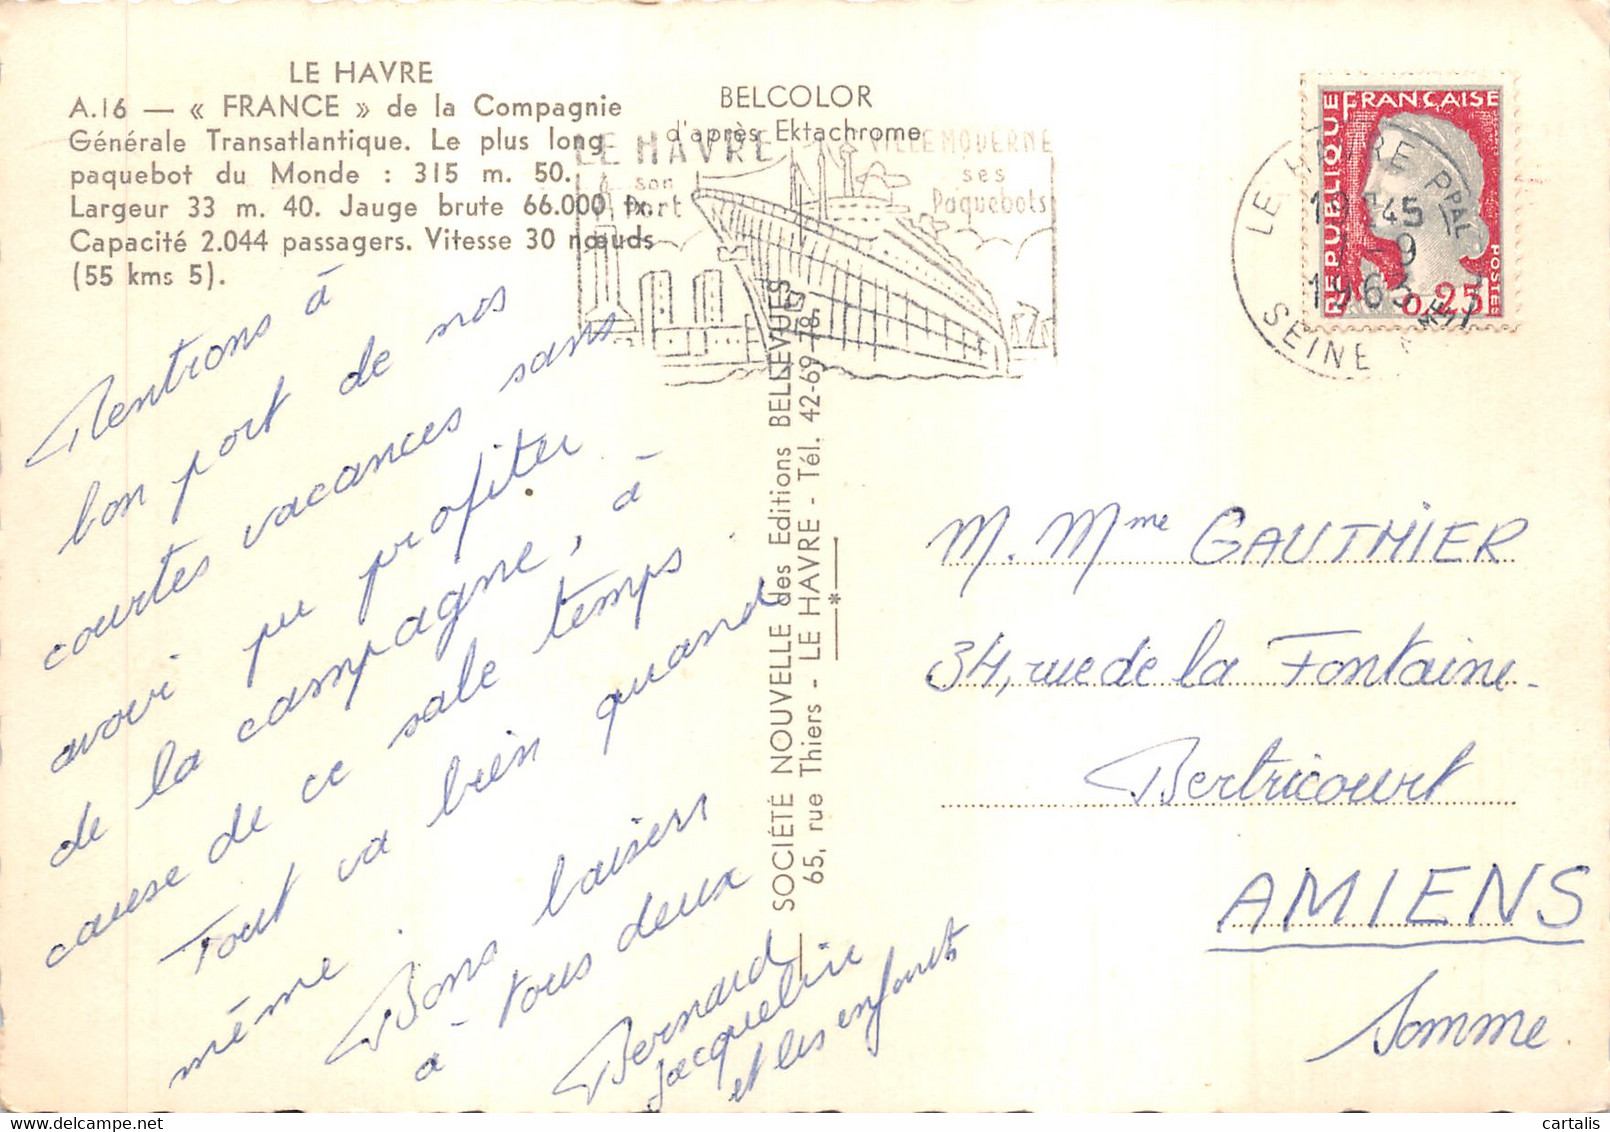 LE HAVRE
A.16 — « FRANCE » de la Compagnie
Générale Transatlantique. Le plus long
paquebot du Monde : 315 m. 50.
Largeur 33 m. 40. Jauge brute 66.000 tx.
Capacité 2.044 passagers. Vitesse 30 nœuds
(55 kms 5).
BELCOLOR
d'après Ektachrome
LE HAVRE
son
Port
VILLE MODERNE
ses
Paquebots
RÉPUBLIQUE FRANÇAISE
POSTES
0,25
LE HAVRE PPAL
1963
SEINE
Rentrons à
bon port de nos
courtes vacances sans
avoir pu profiter
de la campagne, à
cause de ce sale temps
Tout va bien quand
même.
Bons baisers
à tous deux
Bernard
Jacqueline
et les enfants
SOCIÉTÉ NOUVELLE des Editions BELLEVUES
65, rue Thiers - LE HAVRE - Tél. 42-69-78
M. Mme GAUTHIER
34, rue de la Fontaine
Bertricourt
AMIENS
Somme.
cartalis
www.delcampe.net